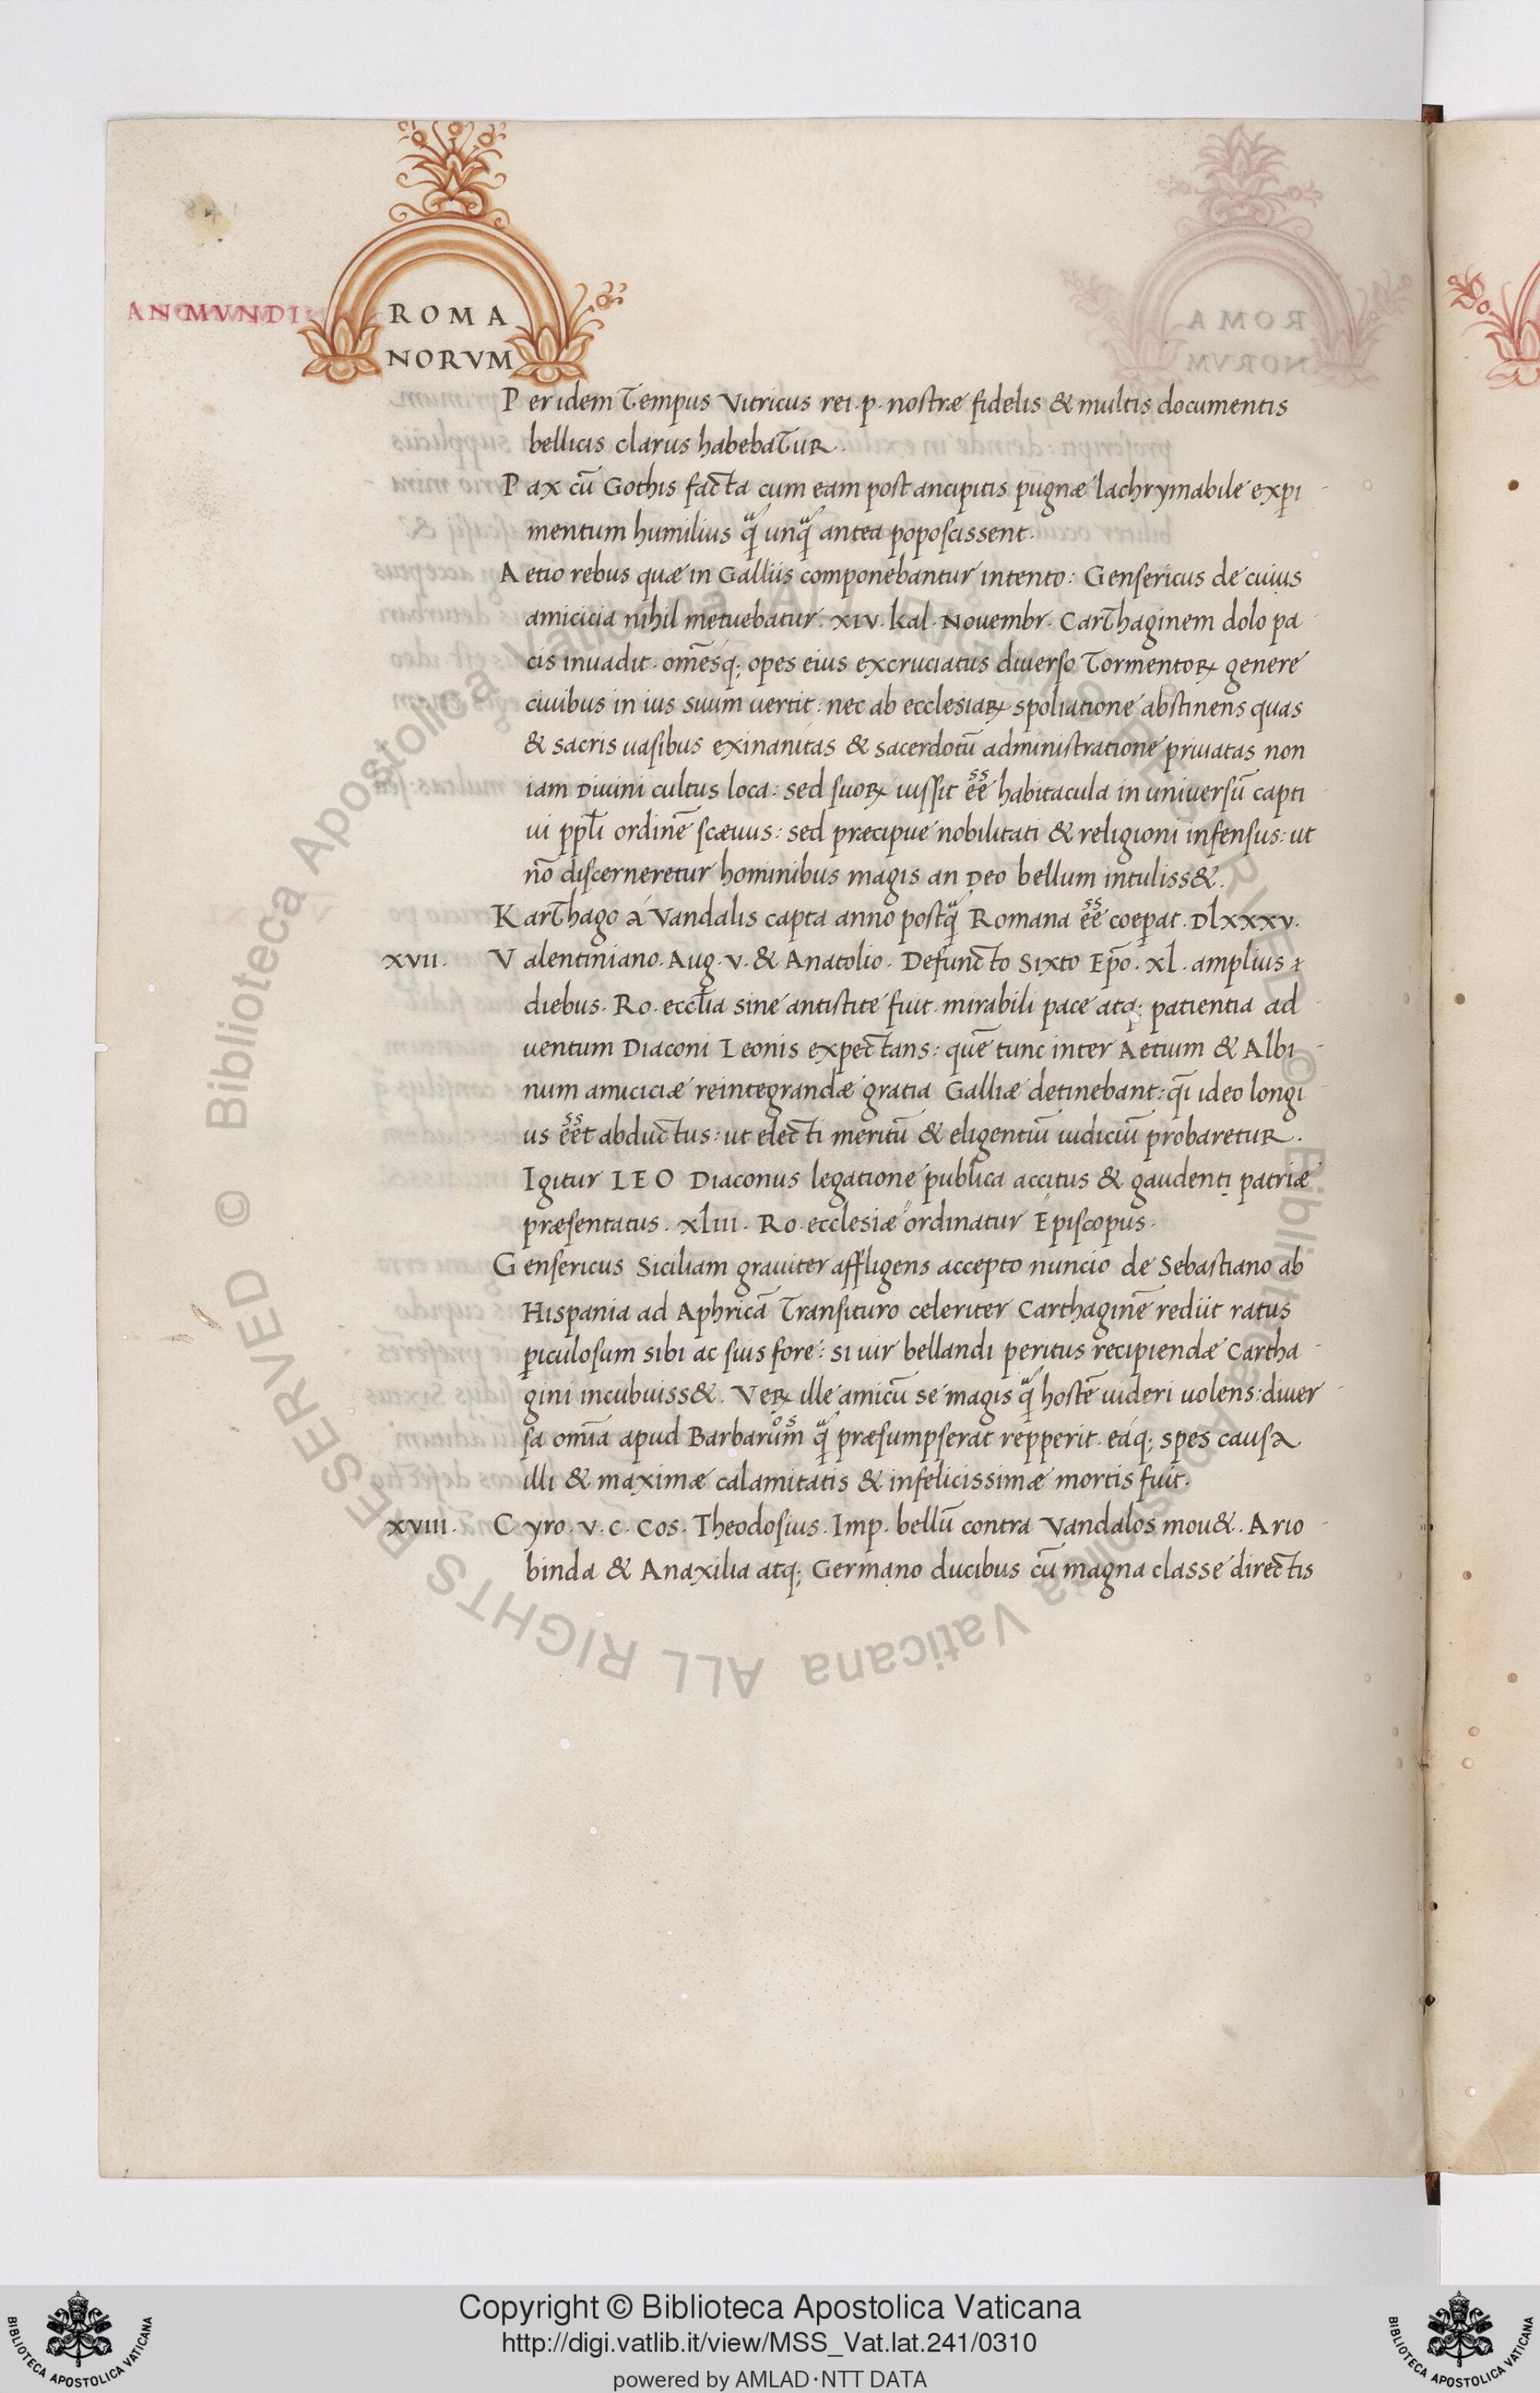 AN MVNDI
ROMA
NORVM
Per idem Tempus Vitricus rei.p. nostræ fidelis & multis documentis
bellicis clarus habebaTuR.
Pax cū Gothis facta cum eam post ancipitis pugnæ lachrymabile exp̱i
mentum humilius q̃ unq̃ antea poposcissent.
Aetio rebus quæ in Galliis componebantur intento: Gensericus de cuius
amicicia nihil metuebatur. XIV. kal. Nouembr. CarThaginem dolo pa
cis inuadit. om̄esq; opes eius excruciatus diuerso Tormentoꝝ genere
ciuibus in ius suum uertit: nec ab ecclesiaꝝ spoliatione abstinens quas
& sacris uasibus exinanitas & sacerdotū administratione priuatas non
iam Diuini cultus loca: sed suoꝝ iussit ēē habitacula in uniuersū capti
ui pp̄li ordinē scæuus: sed præcipue nobilitati & religioni infensus: ut
nō discerneretur hominibus magis an Deo bellum intuliss&.
KarThago á Vandalis capta anno postq̃ Romana ēē coeperat. DLXXXV.
XVII. Valentiniano. Aug. V. & Anatolio. Defuncto Sixto Ep̄o. XL. amplius
diebus. Ro. eccl̄ia sine antistite fuit. mirabili pace atq; patientia ad
uentum Diaconi Leonis expectans: quē tunc inter Aetium & Albi
num amiciciæ reintegrandæ gratia Galliæ detinebant: q̄i ideo longi
us ēēt abductus: ut electi meritū & eligentiū iudiciū probaretuR.
Igitur LEO Diaconus legatione publica accitus & gaudenti patriæ
præsentatus. XLIII. Ro. ecclesiæ ordinatur Episcopus.
Gensericus Siciliam grauiter affligens accepto nuncio de Sebastiano ab
Hispania ad Aphricā Transituro celeriter Carthaginē rediit ratus
ꝑiculosum sibi ac suis fore: si uir bellandi peritus recipiendæ Cartha
gini incubuiss&. Veꝝ ille amicū se magis q̃ hostē uideri uolens: diuer
sa omīa apud Barbarum q̃ præsumpserat repperit. eáq; spes causa
illi & maximæ calamitatis & infelicissimæ mortis fuit.
XVIII. Cyro. V. C. Cos. Theodosius. Imp. bellū contra Vandalos mou&. Ario
binda & Anaxilia atq; Germano ducibus cū magna classe directis
© Biblioteca Apostolica Vaticana ALL RIGHTS RESERVED
Copyright © Biblioteca Apostolica Vaticana
http://digi.vatlib.it/view/MSS_Vat.lat.241/0310
powered by AMLAD·NTT DATA
BIBLIOTECA APOSTOLICA VATICANA
BIBLIOTECA APOSTOLICA VATICANA